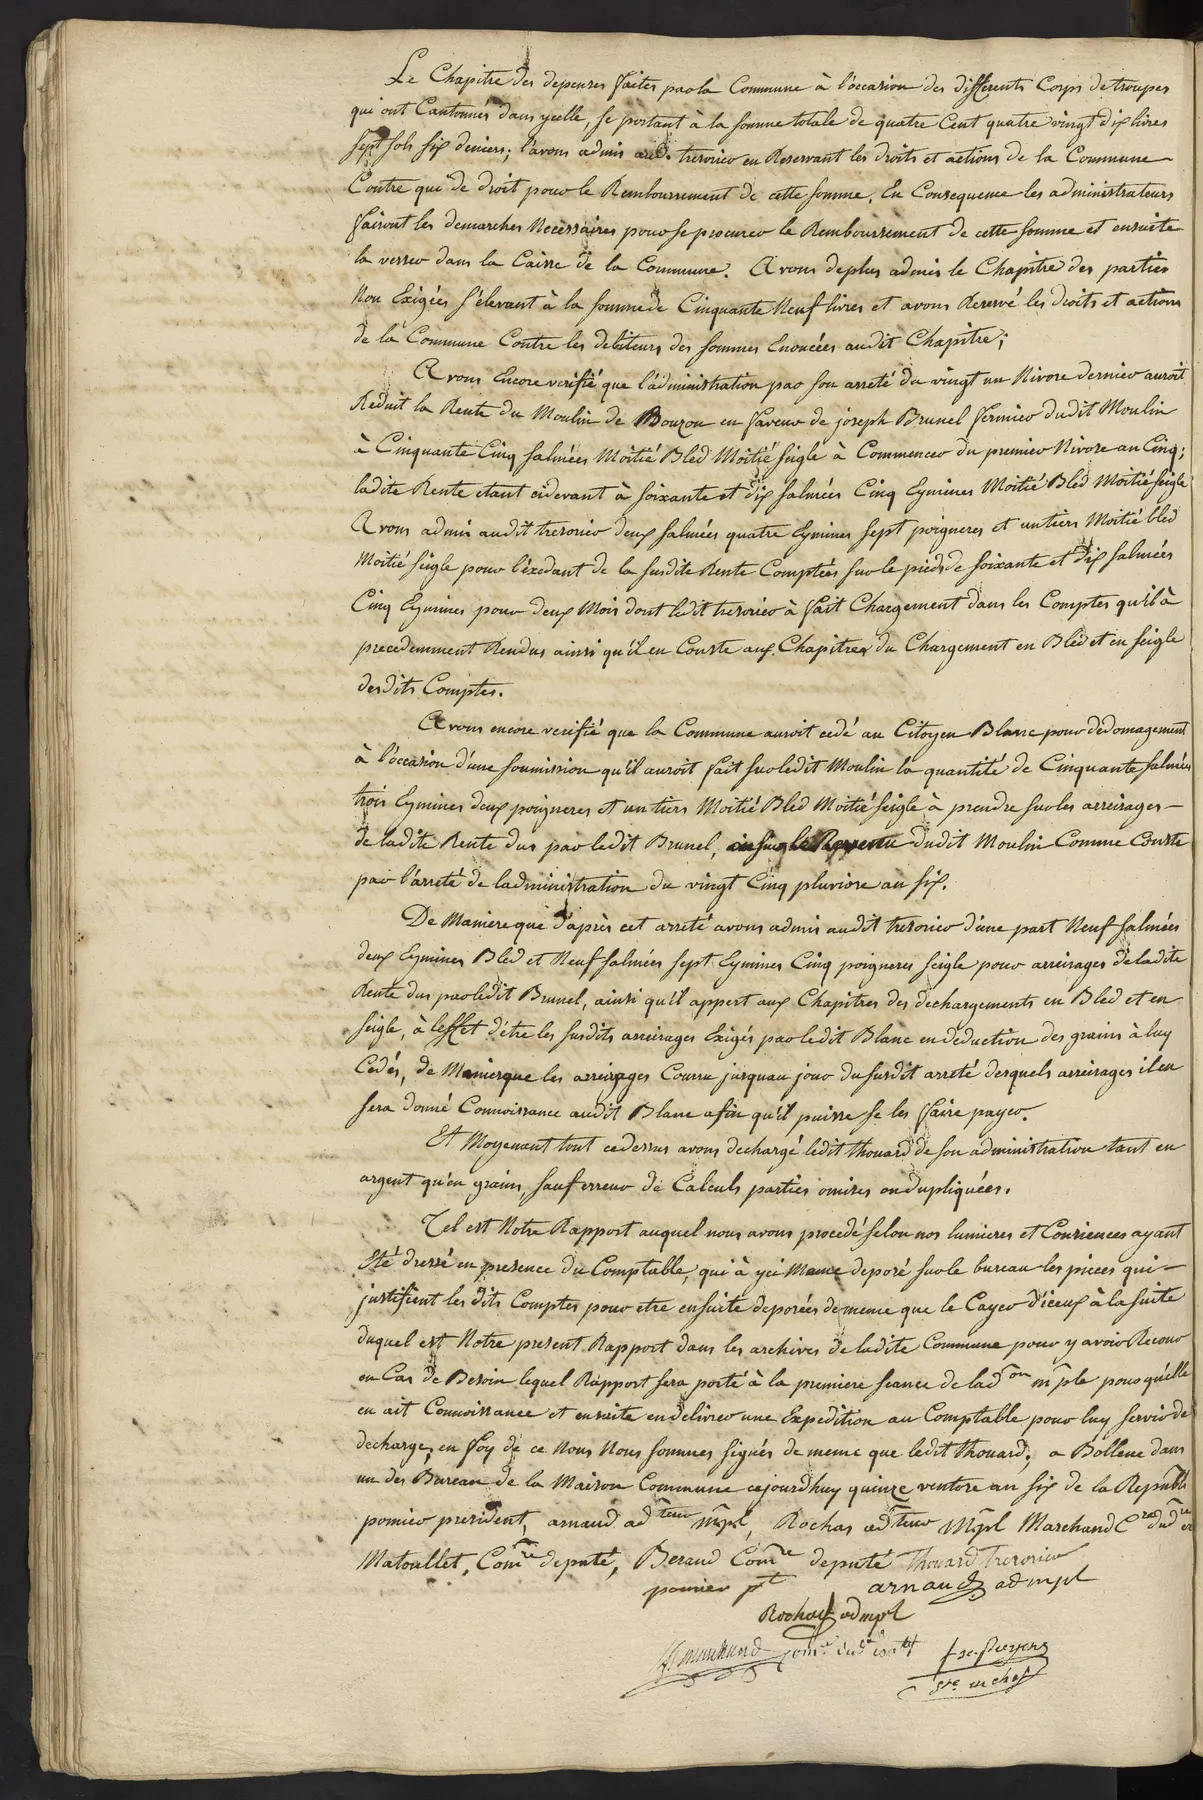 Le Chapitre des depenses faites par la Commune à l'occasion des differents Corps de troupes
qui ont Cantonnés dans ycelle, se portant à la somme totale de quatre Cent quatre vingt dix livres
sept sols six deniers; l'avons admis aud. tresorier en Reservant les droits et actions de la Commune
Contre qui de droit pour le Remboursement de cette somme. En Consequence les administrateurs
fairont les demarches Necessaires pour se procurer le Remboursement de cette somme et ensuite
la verser dans la Caisse de la Commune. Avons deplus admis le Chapitre des parties
Non Exigées s'élevant à la somme de Cinquante Neuf livres et avons Reservé les droits et actions
de la Commune Contre les debiteurs des sommes Enoncées audit Chapitre;
Avons Encore verifié que l'administration par son arreté du vingt un Nivose dernier auroit
Reduit la Rente du Moulin de Bouzon en faveur de joseph Brunel fermier dudit Moulin
à Cinquante Cinq salmées Moitié Bled Moitié seigle à Commencer du premier Nivose an Cinq;
ladite Rente etant cidevant à soixante et dix salmées Cinq Eymines Moitié Bled Moitié seigle
Avons admis audit tresorier deux salmées quatre Eymines sept poigneres et un tiers Moitié bled
Moitié seigle pour l'éxedant de la susdite Rente Comptées sur le pied de soixante et dix salmées
Cinq Eymines pour deux Mois dont ledit tresorier à fait Chargement dans les Comptes qu'il à
precedemment Rendus ainsi qu'il en Conste aux Chapitres du Chargement en Bled et en seigle
desdits Comptes.
Avons encore verifié que la Commune auroit cedé au Citoyen Blanc pour dedomagement
à l'occasion d'une soumission qu'il auroit fait sur ledit Moulin la quantité de Cinquante salmées
trois Eymines deux poigneres et un tiers Moitié Bled Moitié seigle à prendre sur les arreirages
de ladite Rente dus par ledit Brunel, dudit Moulin Comme Conste
par l'arreté de ladministration du vingt Cinq pluviose an six.
De Maniere que d'après cet arreté avons admis audit tresorier d'une part Neuf salmées
deux Eymines Bled et Neuf salmées sept Eymines Cinq poigneres seigle pour arreirages de ladite
Rente dus par ledit Brunel, ainsi qu'il appert aux Chapitres des dechargements en Bled et en
seigle, à leffet d'être les susdits arreirages Exigés par ledit Blanc en deduction des grains à luy
Cedés, de Manierque les arreirages Courru jusquau jour du susdit arreté desquels arreirages il en
sera donné Connoissance audit Blanc afin qu'il puisse se les faire payer.
Et Moyenant tout cedessus avons dechargé ledit thouard de son administration tant en
argent qu'en grains, sauf erreur de Calculs parties omises ou dupliquées.
Tel est Notre Rapport auquel nous avons procedé selon nos lumieres et Consiences ayant
Eté dressé en presence du Comptable, qui à yci Meme deposé sur le bureau les pieces qui
justifient lesdits Comptes pour etre ensuite deposées de meme que le Cayer d'iceux à la suite
duquel est Notre present Rapport dans les archives de ladite Commune pour y avoir Recour
en Cas de Besoin lequel Rapport sera porté à la premiere seance de lad.on m͞ple pour qu'elle
en ait Connoissance et ensuite en delivrer une Expedition au Comptable pour luy servir de
decharge, en foy de ce Nous Nous sommes signés de meme que ledit thouard; a Bollene dans
un des Bureau de la Maison Commune cejourdhuy quinze ventose an six de la Republ.
pomier president, arnaud adteur mpl, Rochas adteur Mpl Marchand
Matoullet, Comre deputé, Beraud Comre deputé Thouard tresorier
pomier pt arnaud admpl
Rochas admpl
Marchand
Sre en chef